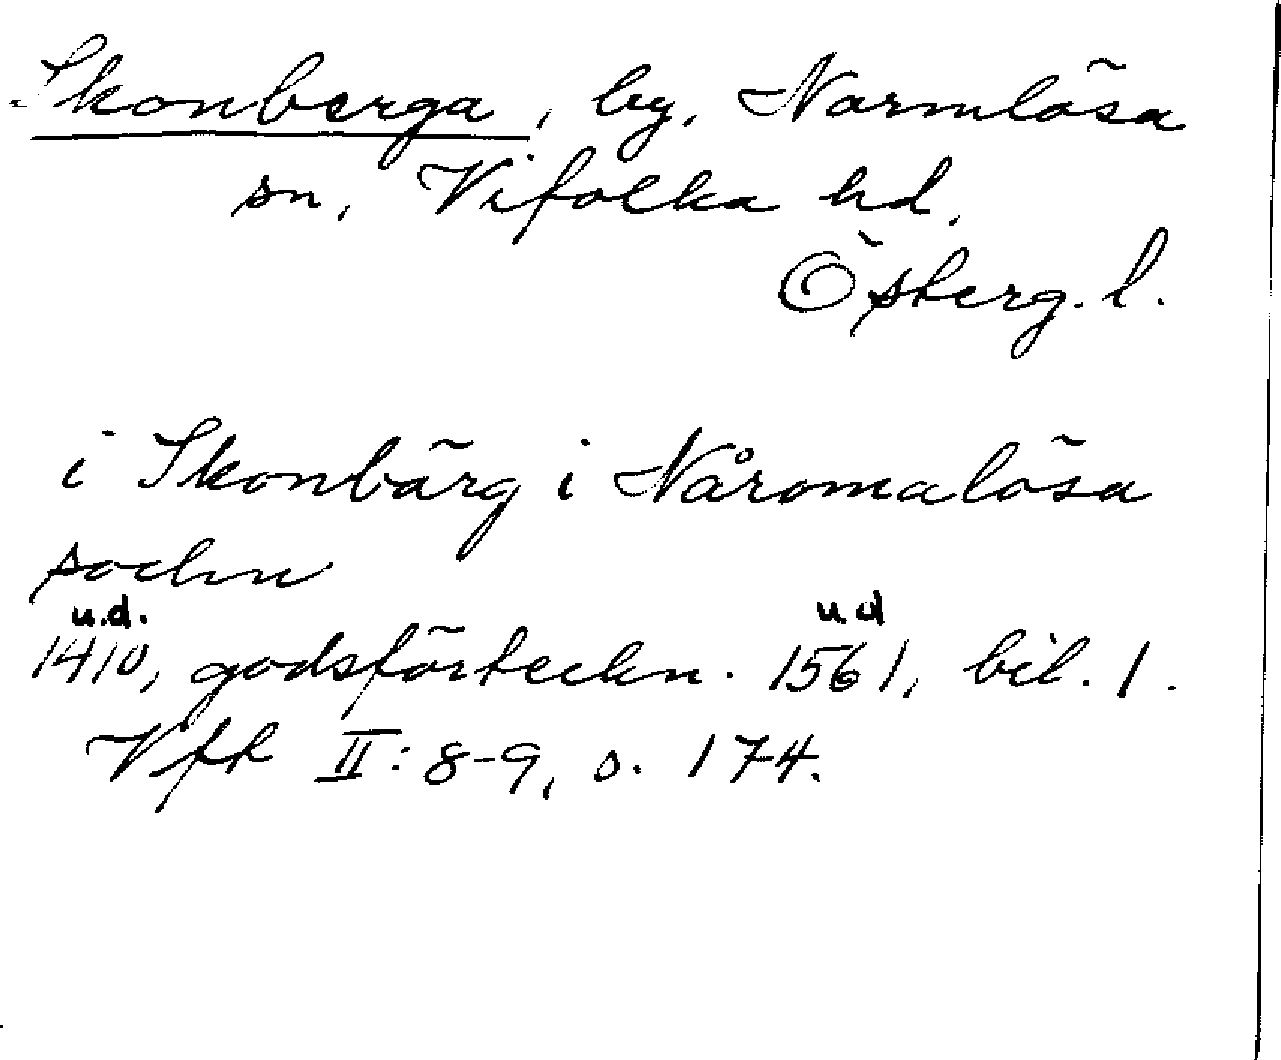 Skonberga, by, Normlösa
sn, Vifolka hd,
Östergl.
i Skonbärg i Nåromalösa
sochn
u.d. u.d
1410, godsförteckn. 1561, bil. 1.
Vfk II: 8-9, s. 174.